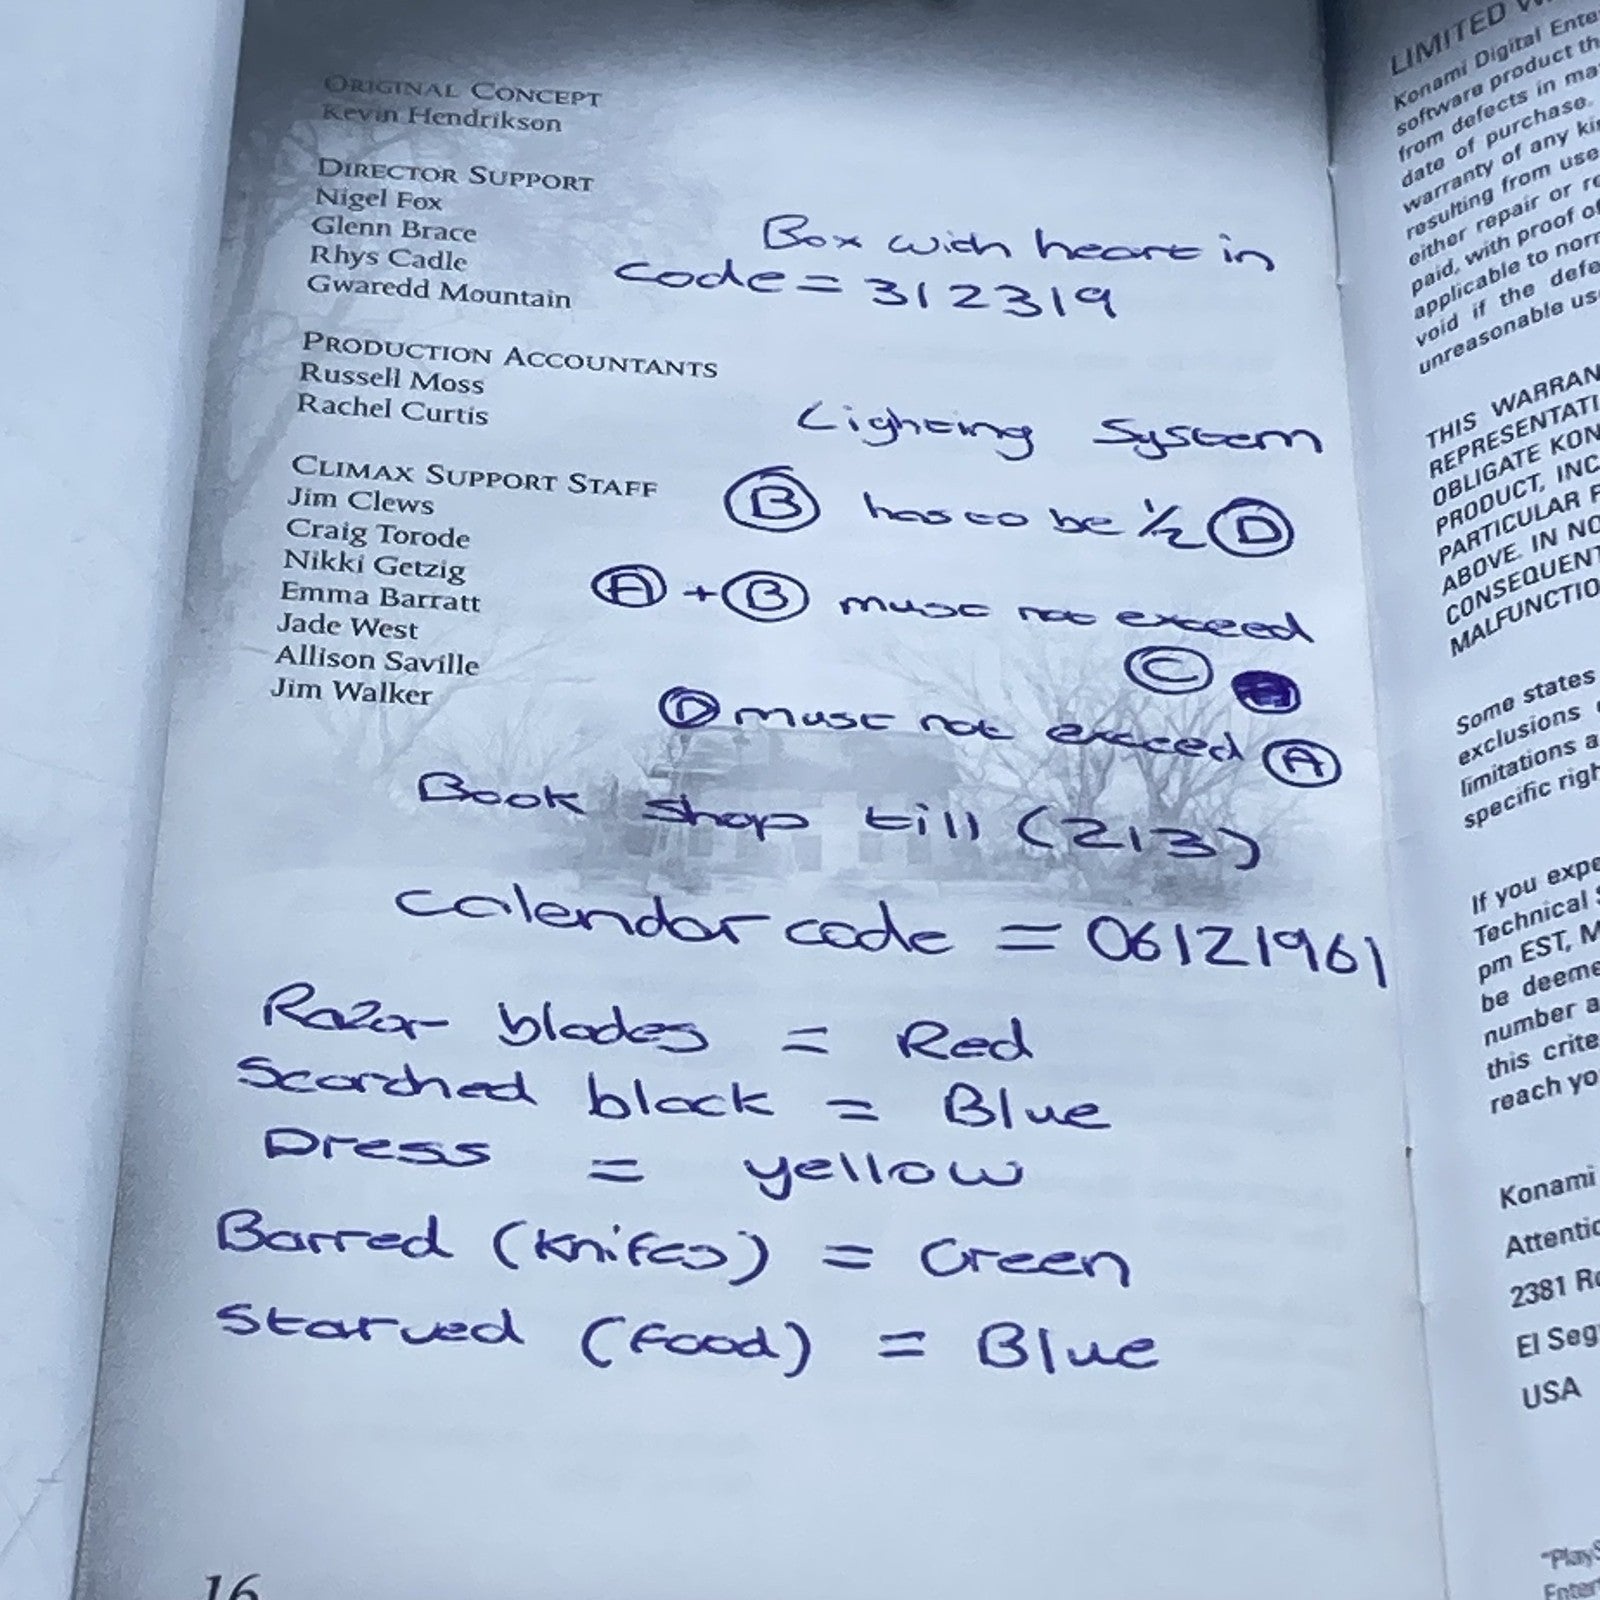 ORIGINAL CONCEPT
Kevin Hendrikson
DIRECTOR SUPPORT
Nigel Fox
Glenn Brace
Rhys Cadle
Gwaredd Mountain
PRODUCTION ACCOUNTANTS
Russell Moss
Rachel Curtis
CLIMAX SUPPORT STAFF
Jim Clews
Craig Torode
Nikki Getzig
Emma Barratt
Jade West
Allison Saville
Jim Walker
Box with heart in
code = 312319
Lighting System
B has to be 1/2 D
A + B must not exceed
C
D must not exceed A
Book shop till (213)
calendar code = 06121961
Razor blades = Red
Scorched black = Blue
Dress = yellow
Barred (Knifes) = Green
Starved (food) = Blue
16
LIMITED
Konami Digital
software product
from defects in
date of purchase.
warranty of any
resulting from use
either repair or
paid, with proof of
applicable to
void if the
unreasonable
THIS
OBLIGATE
PRODUCT,
PARTICULAR
ABOVE. IN NO
Some states
exclusions
limitations
specific
If you
Technical
pm EST,
be
number
this
reach
Konami
2381
El
USA